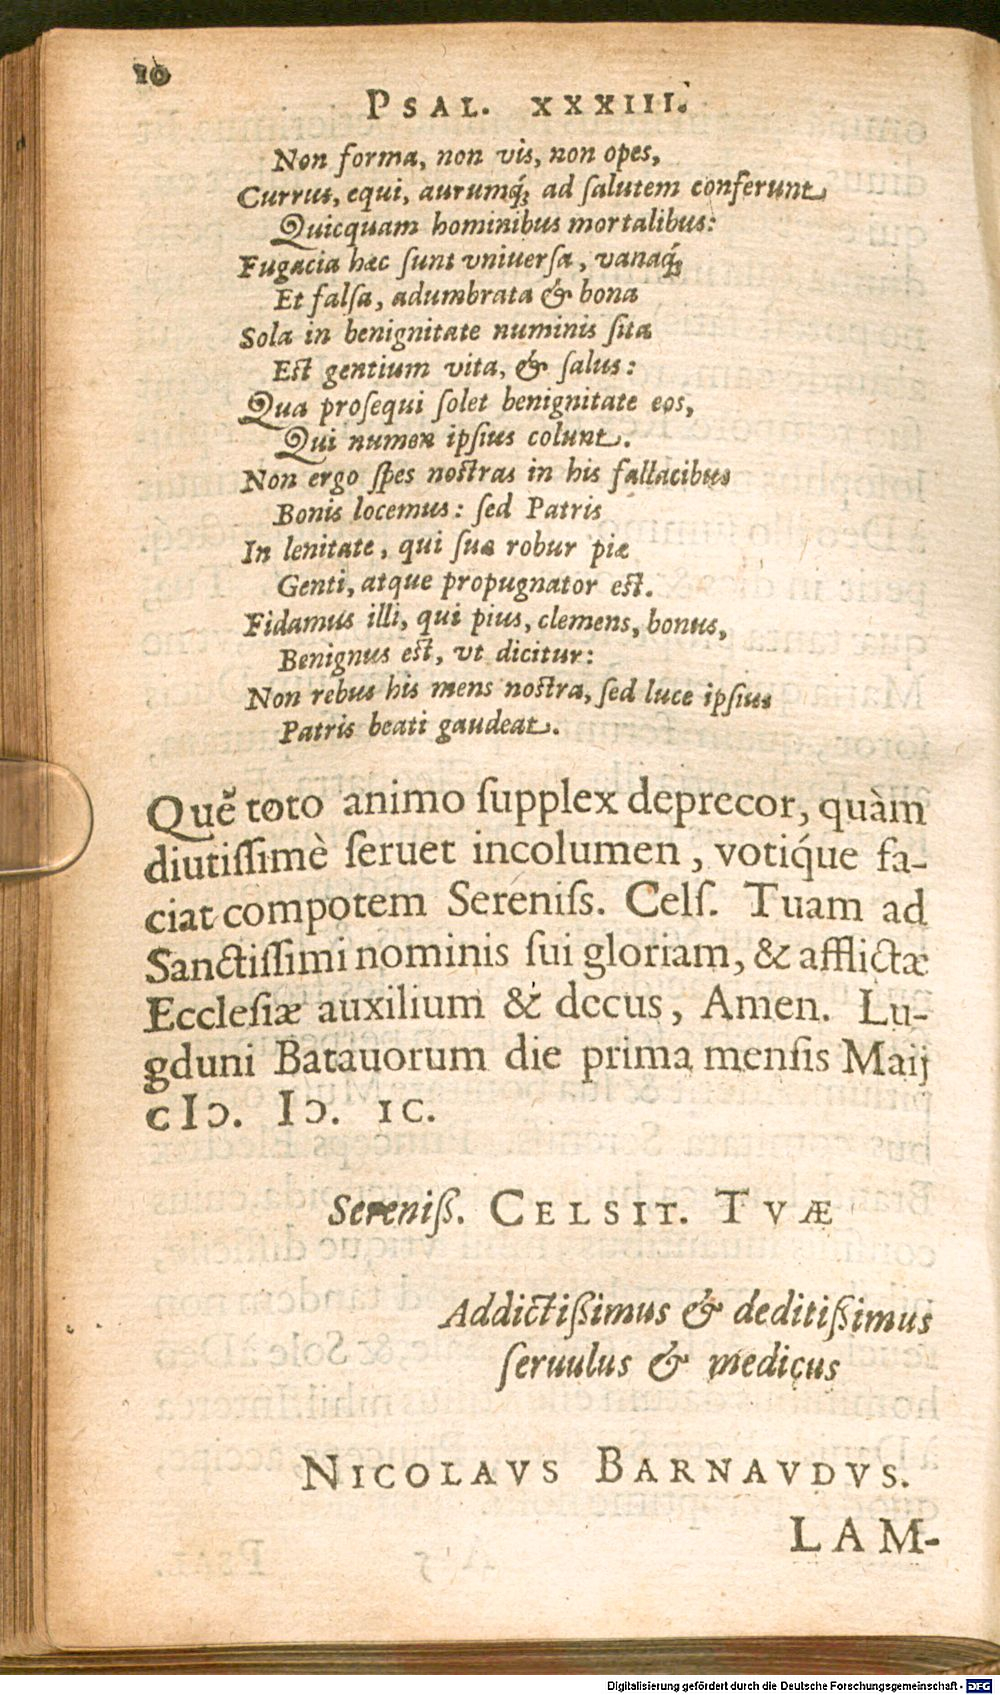 10
PSAL. XXXIII.
Non forma, non vis, non opes,
Currus, equi, aurumq́; ad ſalutem conferunt
Quicquam hominibus mortalibus:
Fugacia hæc ſunt vniuerſa, vanaq́;
Et falſa, adumbrata & bona
Sola in benignitate numinis ſita
Eſt gentium vita, & ſalus:
Qua proſequi ſolet benignitate eos,
Qui numen ipſius colunt.
Non ergo ſpes noſtras in his fallacibus
Bonis locemus: ſed Patris
In lenitate, qui ſuæ robur piæ
Genti, atque propugnator eſt.
Fidamus illi, qui pius, clemens, bonus,
Benignus eſt, vt dicitur:
Non rebus his mens noſtra, ſed luce ipſius
Patris beati gaudeat.
Quē toto animo ſupplex deprecor, quàm
diutiſſimè ſeruet incolumen, votiq́ue fa-
ciat compotem Sereniſs. Celſ. Tuam ad
Sanctiſſimi nominis ſui gloriam, & afflictæ
Eccleſiæ auxilium & decus, Amen. Lu-
gduni Batauorum die prima menſis Maij
cIↄ. Iↄ. IC.
Sereniß. CELSIT. TVÆ
Addictißimus & deditißimus
ſeruulus & medicus
NICOLAVS BARNAVDVS.
LAM-
Digitalisierung gefördert durch die Deutsche Forschungsgemeinschaft - DFG